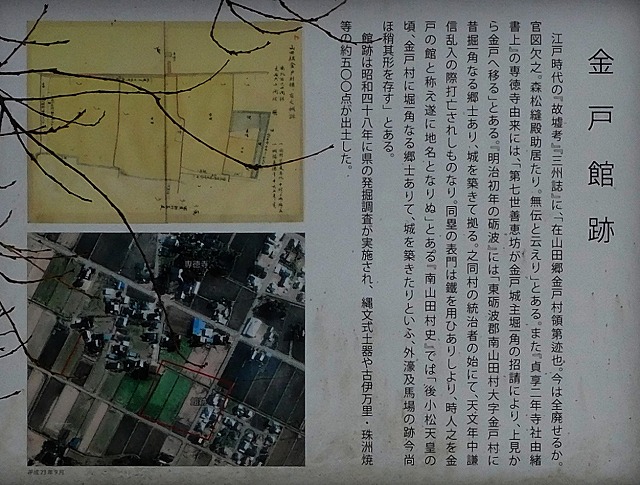 金戸館跡
江戸時代の『故墟考』『三州誌』に、「在山田郷金戸村領第迹也。今は全廃せるか。
官図欠之。森松縫殿助居たり。無伝と云えり」とある。また『貞享二年寺社由緒
書上』の専徳寺由来には、「第七世善恵坊が金戸城主堀一角の招請により、上見か
ら金戸へ移る」とある。『明治初年の砺波』には「東砺波郡南山田村大字金戸村に
昔堀一角なる郷士あり、城を築きて拠る。之同村の統治者の始にて、天文年中謙
信乱入の際打亡されしものなり。同塁の表門は鐵を用ひありしより、時人之を金
戸の館と称え遂に地名となりぬ」とある『南山田村史』では「後小松天皇の
頃、金戸村に堀一角なる郷士ありて、城を築きたりといふ、外濠及馬場の跡今尚
ほ稍其形を存す」とある。
館跡は昭和四十八年に県の発掘調査が実施され、縄文式土器や古伊万里・珠洲焼
等の約五〇〇点が出土した。
専徳寺
館跡